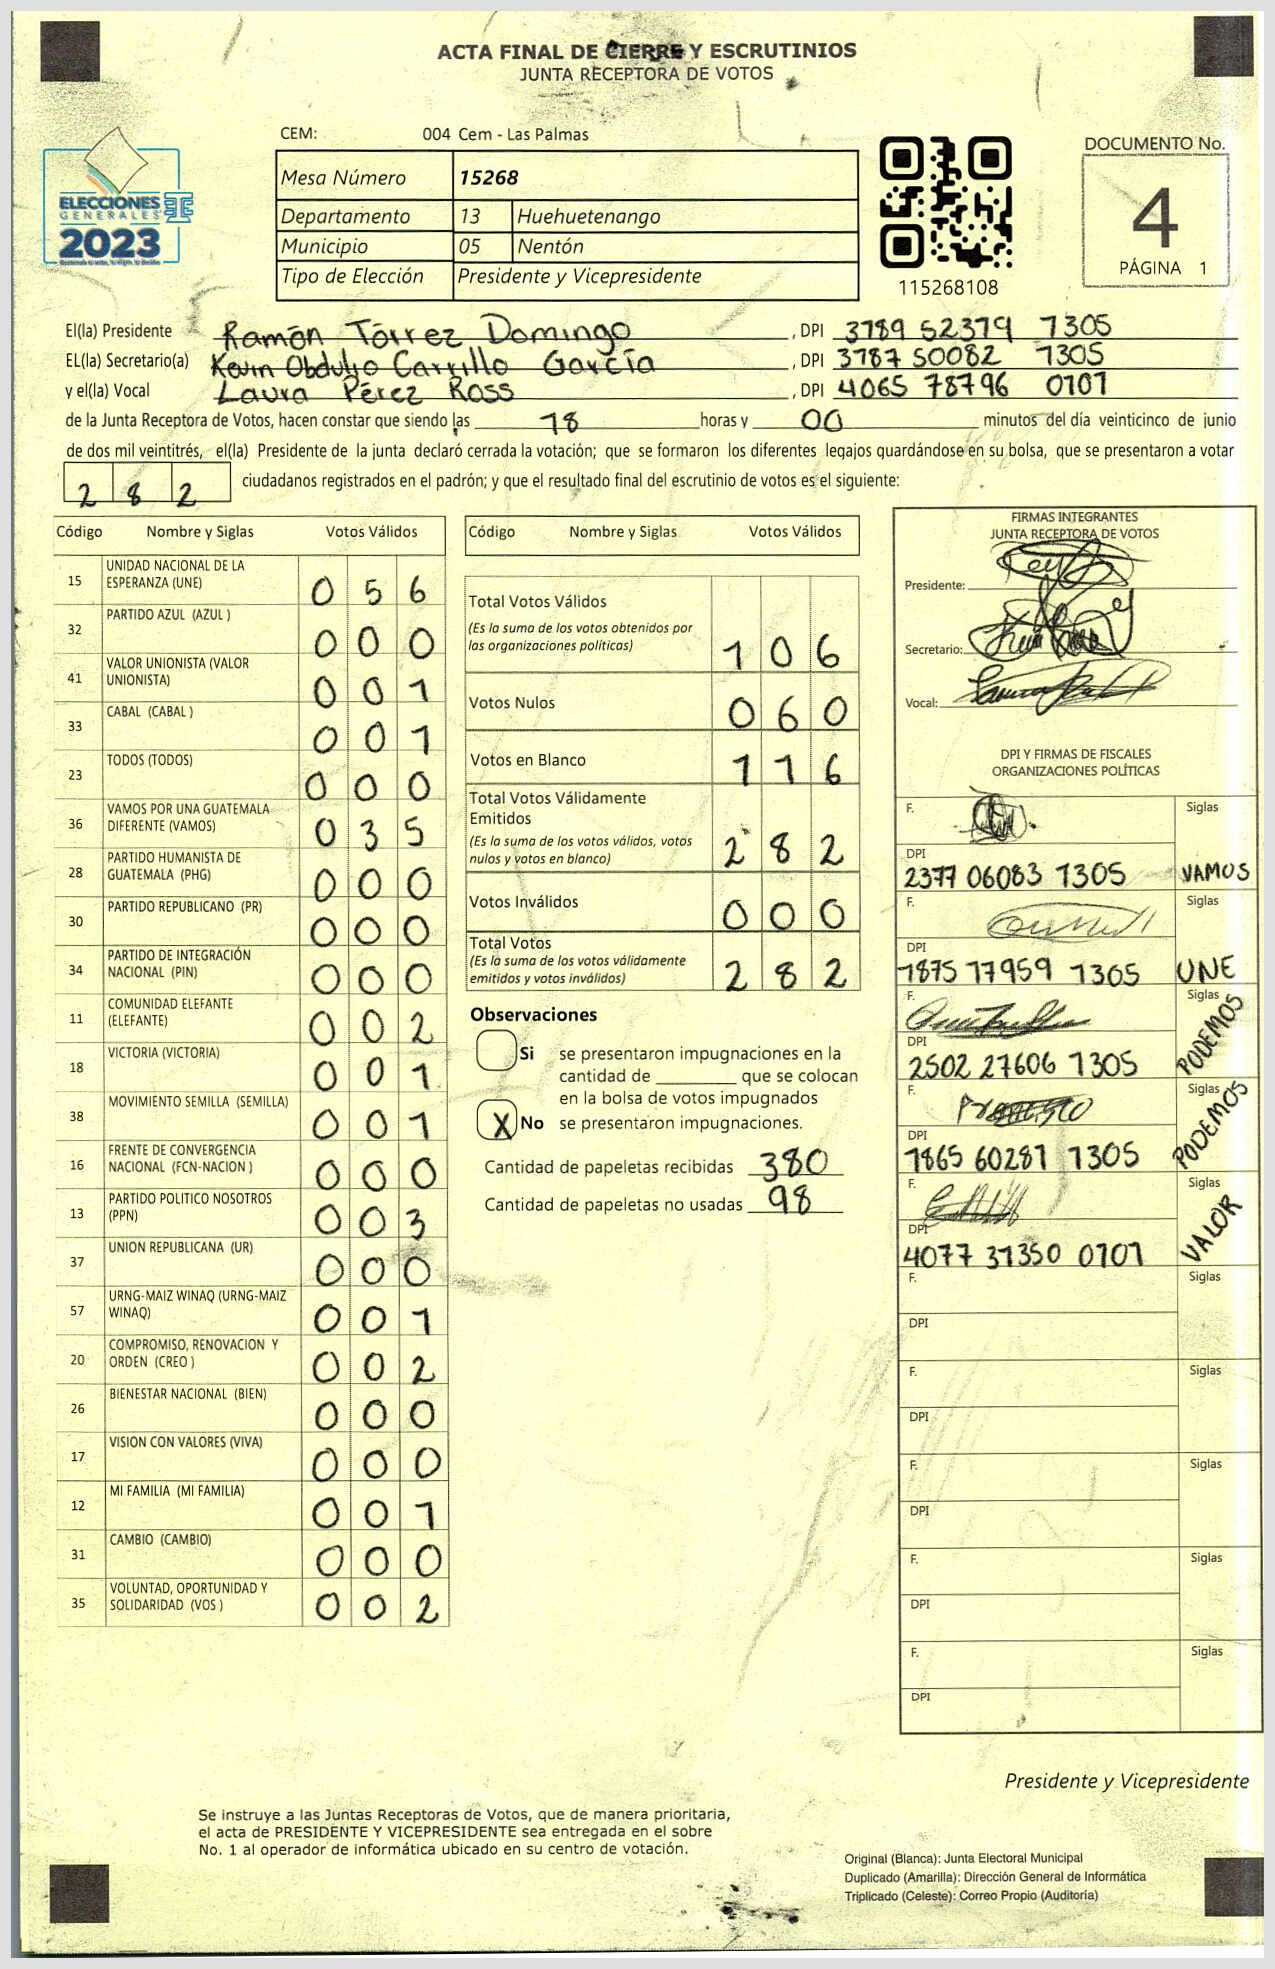 ACTA FINAL DE CIERRE Y ESCRUTINIOS
JUNTA RECEPTORA DE VOTOS
CEM: 004 Cem - Las Palmas
ELECCIONES
GENERALES
2023
Mesa Número 15268
Departamento 13 Huehuetenango
Municipio 05 Nentón
Tipo de Elección Presidente y Vicepresidente
115268108
DOCUMENTO No.
4
PÁGINA 1
El(la) Presidente Ramón Tórrez Domingo , DPI 3789 52379 1305
EL(la) Secretario(a) Kevin Obdulio Carrillo García , DPI 3787 50082 1305
y el(la) Vocal Laura Pérez Ross , DPI 4065 78796 0101
de la Junta Receptora de Votos, hacen constar que siendo las 18 horas y 00 minutos del día veinticinco de junio
de dos mil veintitrés, el(la) Presidente de la junta declaró cerrada la votación; que se formaron los diferentes legajos guardándose en su bolsa, que se presentaron a votar
2 8 2 ciudadanos registrados en el padrón; y que el resultado final del escrutinio de votos es el siguiente:
Código Nombre y Siglas Votos Válidos
15 UNIDAD NACIONAL DE LA
ESPERANZA (UNE) 0 5 6
32 PARTIDO AZUL (AZUL ) 0 0 0
41 VALOR UNIONISTA (VALOR
UNIONISTA) 0 0 1
33 CABAL (CABAL ) 0 0 1
23 TODOS (TODOS) 0 0 0
36 VAMOS POR UNA GUATEMALA
DIFERENTE (VAMOS) 0 3 5
28 PARTIDO HUMANISTA DE
GUATEMALA (PHG) 0 0 0
30 PARTIDO REPUBLICANO (PR) 0 0 0
34 PARTIDO DE INTEGRACIÓN
NACIONAL (PIN) 0 0 0
11 COMUNIDAD ELEFANTE
(ELEFANTE) 0 0 2
18 VICTORIA (VICTORIA) 0 0 1
38 MOVIMIENTO SEMILLA (SEMILLA) 0 0 1
16 FRENTE DE CONVERGENCIA
NACIONAL (FCN-NACION ) 0 0 0
13 PARTIDO POLITICO NOSOTROS
(PPN) 0 0 3
37 UNION REPUBLICANA (UR) 0 0 0
57 URNG-MAIZ WINAQ (URNG-MAIZ
WINAQ) 0 0 1
20 COMPROMISO, RENOVACION Y
ORDEN (CREO ) 0 0 2
26 BIENESTAR NACIONAL (BIEN) 0 0 0
17 VISION CON VALORES (VIVA) 0 0 0
12 MI FAMILIA (MI FAMILIA) 0 0 1
31 CAMBIO (CAMBIO) 0 0 0
35 VOLUNTAD, OPORTUNIDAD Y
SOLIDARIDAD (VOS ) 0 0 2
Código Nombre y Siglas Votos Válidos
Total Votos Válidos
(Es la suma de los votos obtenidos por
las organizaciones políticas) 1 0 6
Votos Nulos 0 6 0
Votos en Blanco 1 1 6
Total Votos Válidamente
Emitidos
(Es la suma de los votos válidos, votos
nulos y votos en blanco) 2 8 2
Votos Inválidos 0 0 0
Total Votos
(Es la suma de los votos válidamente
emitidos y votos inválidos) 2 8 2
Observaciones
Si se presentaron impugnaciones en la
cantidad de ________ que se colocan
en la bolsa de votos impugnados
X No se presentaron impugnaciones.
Cantidad de papeletas recibidas 380
Cantidad de papeletas no usadas 98
FIRMAS INTEGRANTES
JUNTA RECEPTORA DE VOTOS
Presidente:
Secretario:
Vocal:
DPI Y FIRMAS DE FISCALES
ORGANIZACIONES POLÍTICAS
F. Siglas
DPI
2377 06083 1305 VAMOS
F. Siglas
DPI
1875 17959 1305 UNE
F. Siglas
DPI
2502 27606 1305 PODEMOS
F. Siglas
DPI
1865 60281 1305 PODEMOS
F. Siglas
DPI
4077 31350 0101 VALOR
F. Siglas
DPI
F. Siglas
DPI
F. Siglas
DPI
F. Siglas
DPI
F. Siglas
DPI
Presidente y Vicepresidente
Se instruye a las Juntas Receptoras de Votos, que de manera prioritaria,
el acta de PRESIDENTE Y VICEPRESIDENTE sea entregada en el sobre
No. 1 al operador de informática ubicado en su centro de votación.
Original (Blanca): Junta Electoral Municipal
Duplicado (Amarilla): Dirección General de Informática
Triplicado (Celeste): Correo Propio (Auditoría)